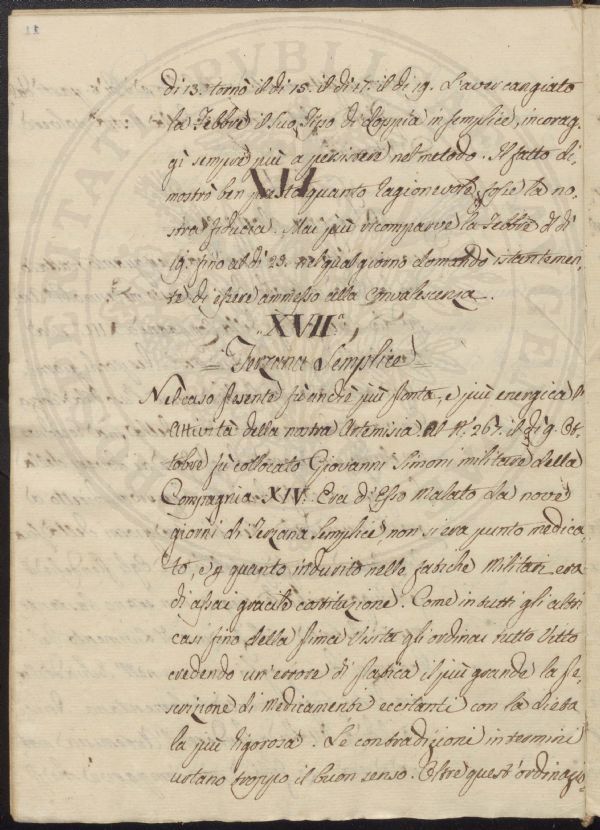 di 13. tornò il di 15. il di 17. il di 19. L'aver cangiato
la Febbre il suo Tipo di Doppia in semplice, incorag-
gì sempre più a persistere nel metodo. Il fatto di-
mostrò ben presto quanto ragionevole fosse la no-
stra fiducia. Mai più ricomparve la Febbre dal di
19. fino al di 29. nel qual giorno domandò istantemen-
te di essere ammesso alla Convalescenza.
XVII
Terzana Semplice
Nel caso presente fù anche più pronta, e più energica l'
Attività della nostra Artemisia. Al N.° 267. il dì 9. Ot-
tobre fù collocato Giovanni Simoni militare della
Compagnia XIV. Era di Esso malato da nove
giorni di Terzana Semplice, non si era punto medica-
to, e quanto indurito nelle fatiche Militari era
di assai gracile costituzione. Come in tutti gli altri
casi fino della prima Visita gli ordinai tutto Vitto
credendo un'errore di pratica il più grande la pre-
scrizione di medicamenti eccitanti con la dieta
la più rigorosa. Le contradizioni in termini
urtano troppo il buon senso. Oltre quest'ordinazio-